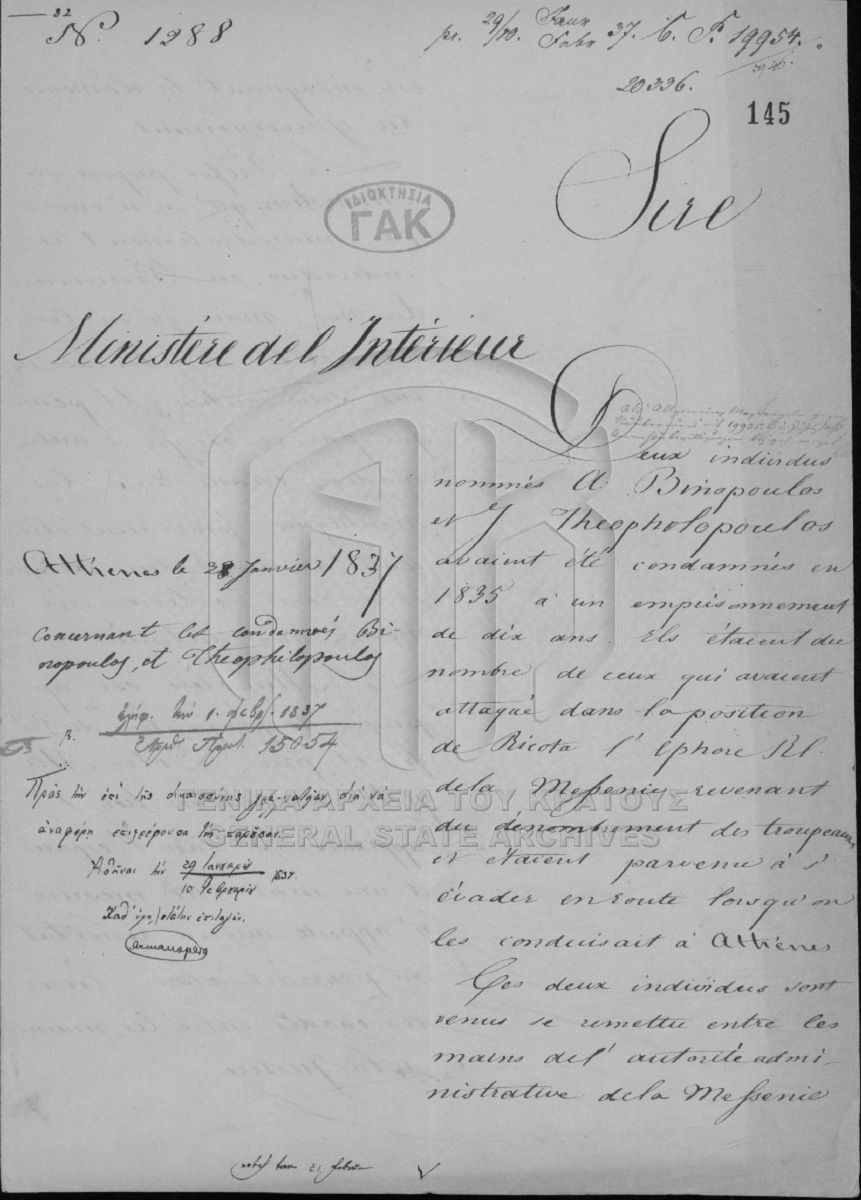 32
N. 1288
pr. 29/10. Jänr Febr 37. C. P. 19954.
20336.
145
Sire
ΙΔΙΟΚΤΗΣΙΑ
ΓΑΚ
Ministère de l Intérieur
Deux individus
nommés A Binopoulos
et J Theopholopoulos
avaient été condamnés en
1835 à un emprisonnement
de dix ans. Ils étaient du
nombre de ceux qui avaient
attaqué dans la position
de Ricota l' Ephore Rl.
de la Messenie, revenant
du dénombrement des troupeaux,
et étaient parvenu à s'
évader en route lorsqu'on
les conduisait à Athènes
Ces deux individus sont
venus se remettre entre les
mains de l' autorité admi-
nistrative de la Messenie
Athènes le 28 Janvier 1837
Concernant les condamnés Bi-
nopoulos, et Theophilopoulos
Ελήφ. την 1. Φεβρ. 1837
Αριθ. Πρωτ. 15054
Πρὸς τὴν ἐπὶ τῆς δικαιοσύνης Γραμματείαν διὰ νὰ
ἀναφέρῃ ἐπιστρέφουσα τὴν παροῦσαν.
Ἀθῆναι τὴν 29 Ἰανουαρίου 10 Φεβρουαρίου 1837.
Καθ' ὑψηλοτάτην ἐπιταγὴν.
ΓΕΝΙΚΑ ΑΡΧΕΙΑ ΤΟΥ ΚΡΑΤΟΥΣ
GENERAL STATE ARCHIVES